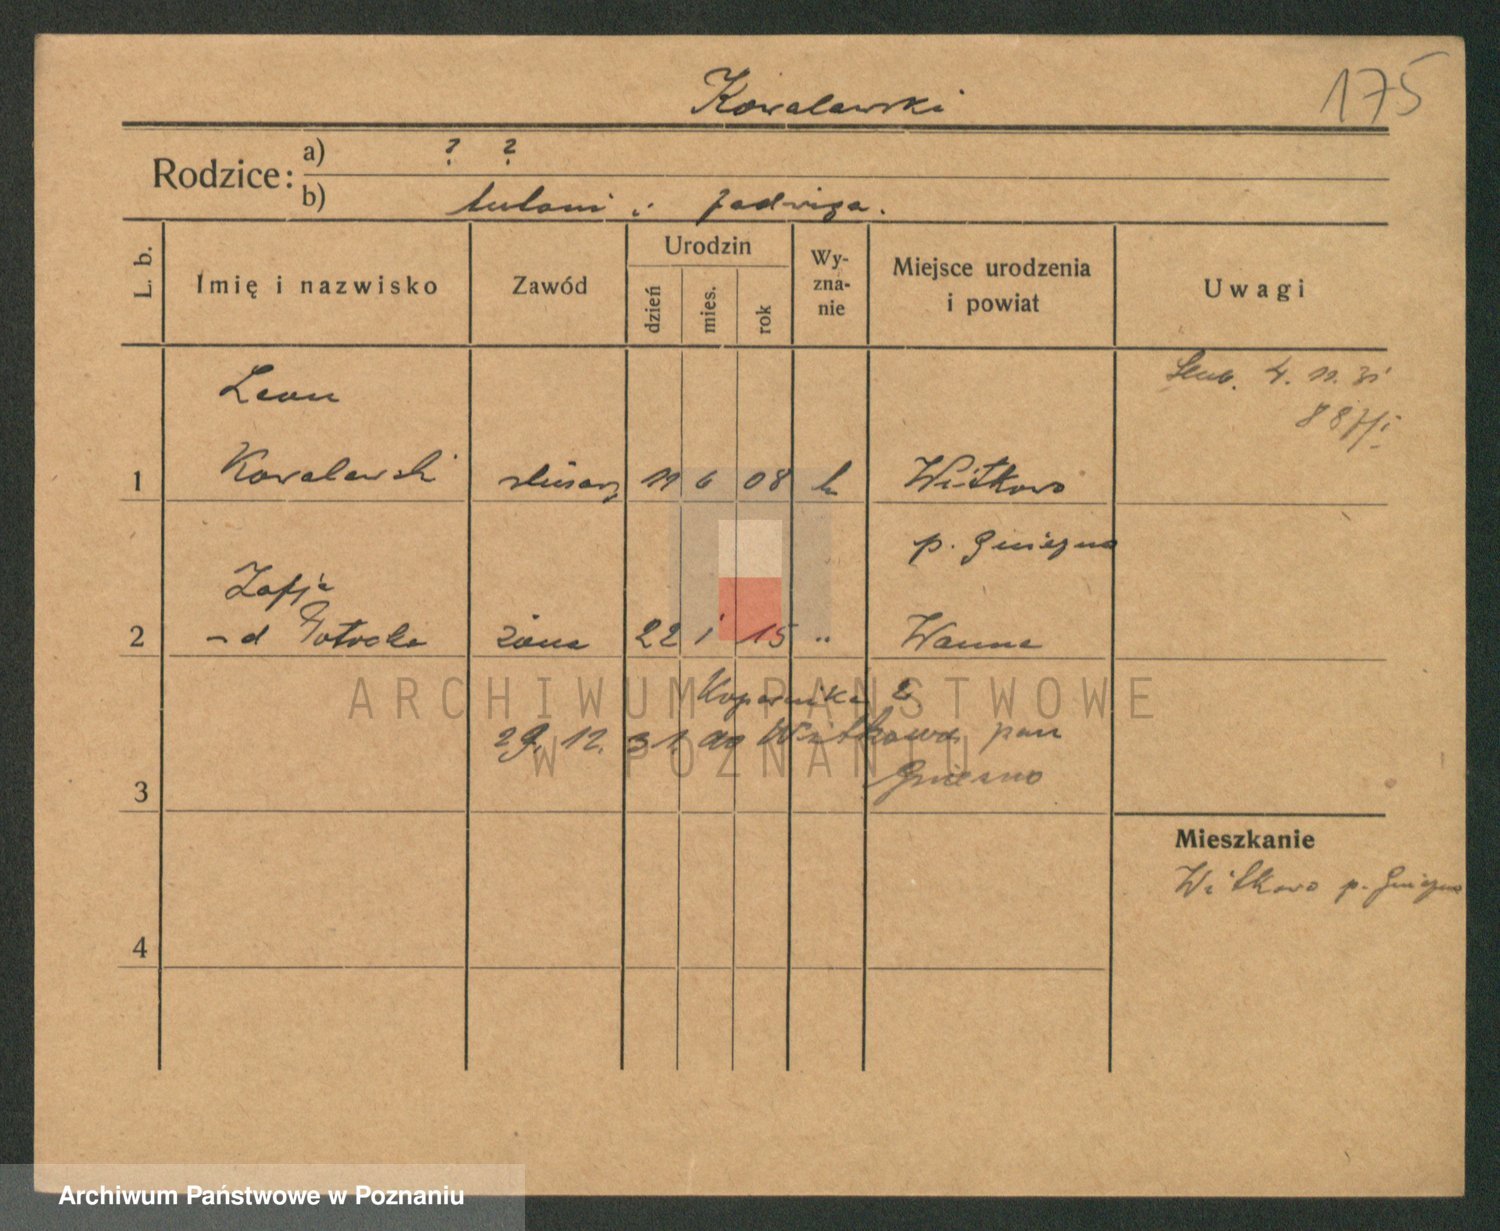 Kowalewski
175
Rodzice:
a) ? ?
b) Antoni i Jadwiga.
L. b.
Imię i nazwisko
Zawód
Urodzin
dzień
mies.
rok
Wy-
zna-
nie
Miejsce urodzenia
i powiat
Uwagi
Leon
Ślub. 4. 11. 31
1 Kowalewski ślusarz 11 6 08 k Witkowo
p. Gniezno
Zofja
2 -d żona 22 1 15 " Wanne
Kopernika 2
29. 12. 31. do Witkowa pow
Gniezno
3
Mieszkanie
Witkowo p. Gniezno
4
ARCHIWUM PAŃSTWOWE
W POZNANIU
Archiwum Państwowe w Poznaniu